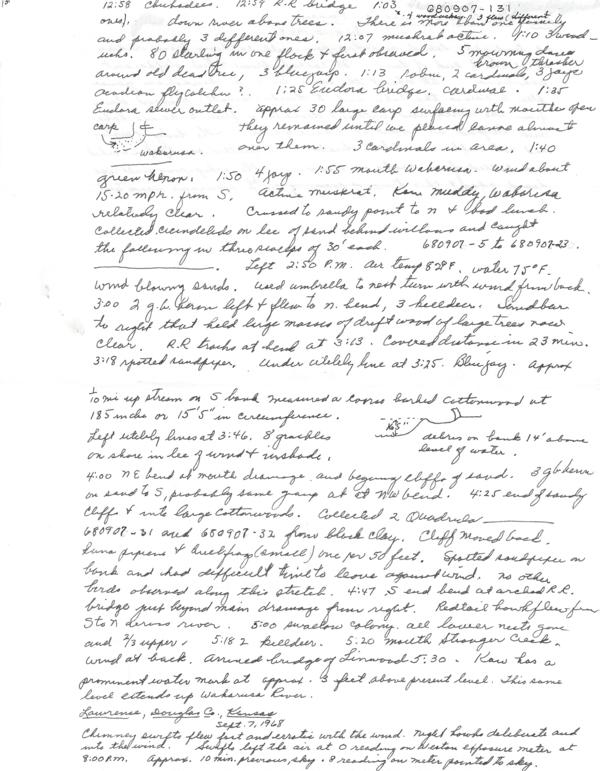 12:58 chickadees. 12:59 R.R bridge 1:03 680907-131
4 woodducks, 3 flew (different
ones), down river above trees. There is more than one family
and probably 3 different ones. 12:07 muskrat active. 1:10 3 wood-
ucks. 80 starling in one flock & first observed. 5 mourning doves
brown thrasher
around old dead tree, 3 bluejays. 1:13 robin, 2 cardinals, 3 jays
acadian flycatcher?. 1:25 Eudora bridge, cardinal. 1:35
Eudora sewer outlet. approx 30 large carp surfacing with mouths open
carp they remained until we placed canoe almost
wakarusa. over them. 3 cardinals in area, 1:40
green heron. 1:50 4 jays. 1:55 mouth Wakarusa. Wind about
15-20 mph. from S, Active muskrat. Kaw muddy, Wakarusa
relatively clear. Crossed to sandy point to n & had lunch.
Collected Cicindelids on lee of sand behind willows and caught
the following in three sweeps of 30' each. 680907-5 to 680907-23.
Left 2:50 P.M. Air temp 82°F, water 75°F.
Wind blowing sands. Used umbrella to next turn with wind from back.
3:00 2 g.b. heron left & flew to n. bend, 3 killdeer. Sandbar
to right that held large masses of driftwood of large trees now
clear. R.R tracks at bend at 3:13. Covered distance in 23 min.
3:18 spotted sandpiper. Under utility line at 3:25. Bluejay. Approx
1/10 mi up stream on S bank measured a loose barked cottonwood at
185 inches or 15'5" in circumference.
Left utility lines at 3:46. 8 grackles debris on bank 14' above
on shore in lee of wind & in shade. level of water.
4:00 NE bend at mouth drainage and beginning cliffs of sand. 3 gb heron
on sand to S, probably same group as at NW bend. 4:25 end of sandy
cliff & into large cottonwoods. Collected 2 Quadrula
680907-31 and 680907-32 from black clay. Cliff moved back.
Rana pipiens & bullfrogs (small) one per 50 feet. Spotted sandpiper on
bank and had difficult time to leave against wind. no other
birds observed along this stretch. 4:47 S end bend at arched R.R.
bridge just beyond main drainage from right. Redtail hawk flew from
S to n across river. 5:00 swallow colony. all lower nests gone
and 2/3 upper. 5:18 2 killdeer. 5:20 mouth Stranger Creek.
Wind at back. Arrived bridge of Linwood 5:30. Kaw has a
prominent water mark at approx. 3 feet above present level. This same
level extends up Wakarusa River.
Lawrence, Douglas Co., Kansas
Sept. 7, 1968
Chimney swifts flew fast and erratic with the wind. Night hawks deliberate and
into the wind. Swifts left the air at 0 reading on Weston exposure meter at
8:00 P.M. Approx. 10 min. previous, sky. 8 reading on meter pointed to sky.